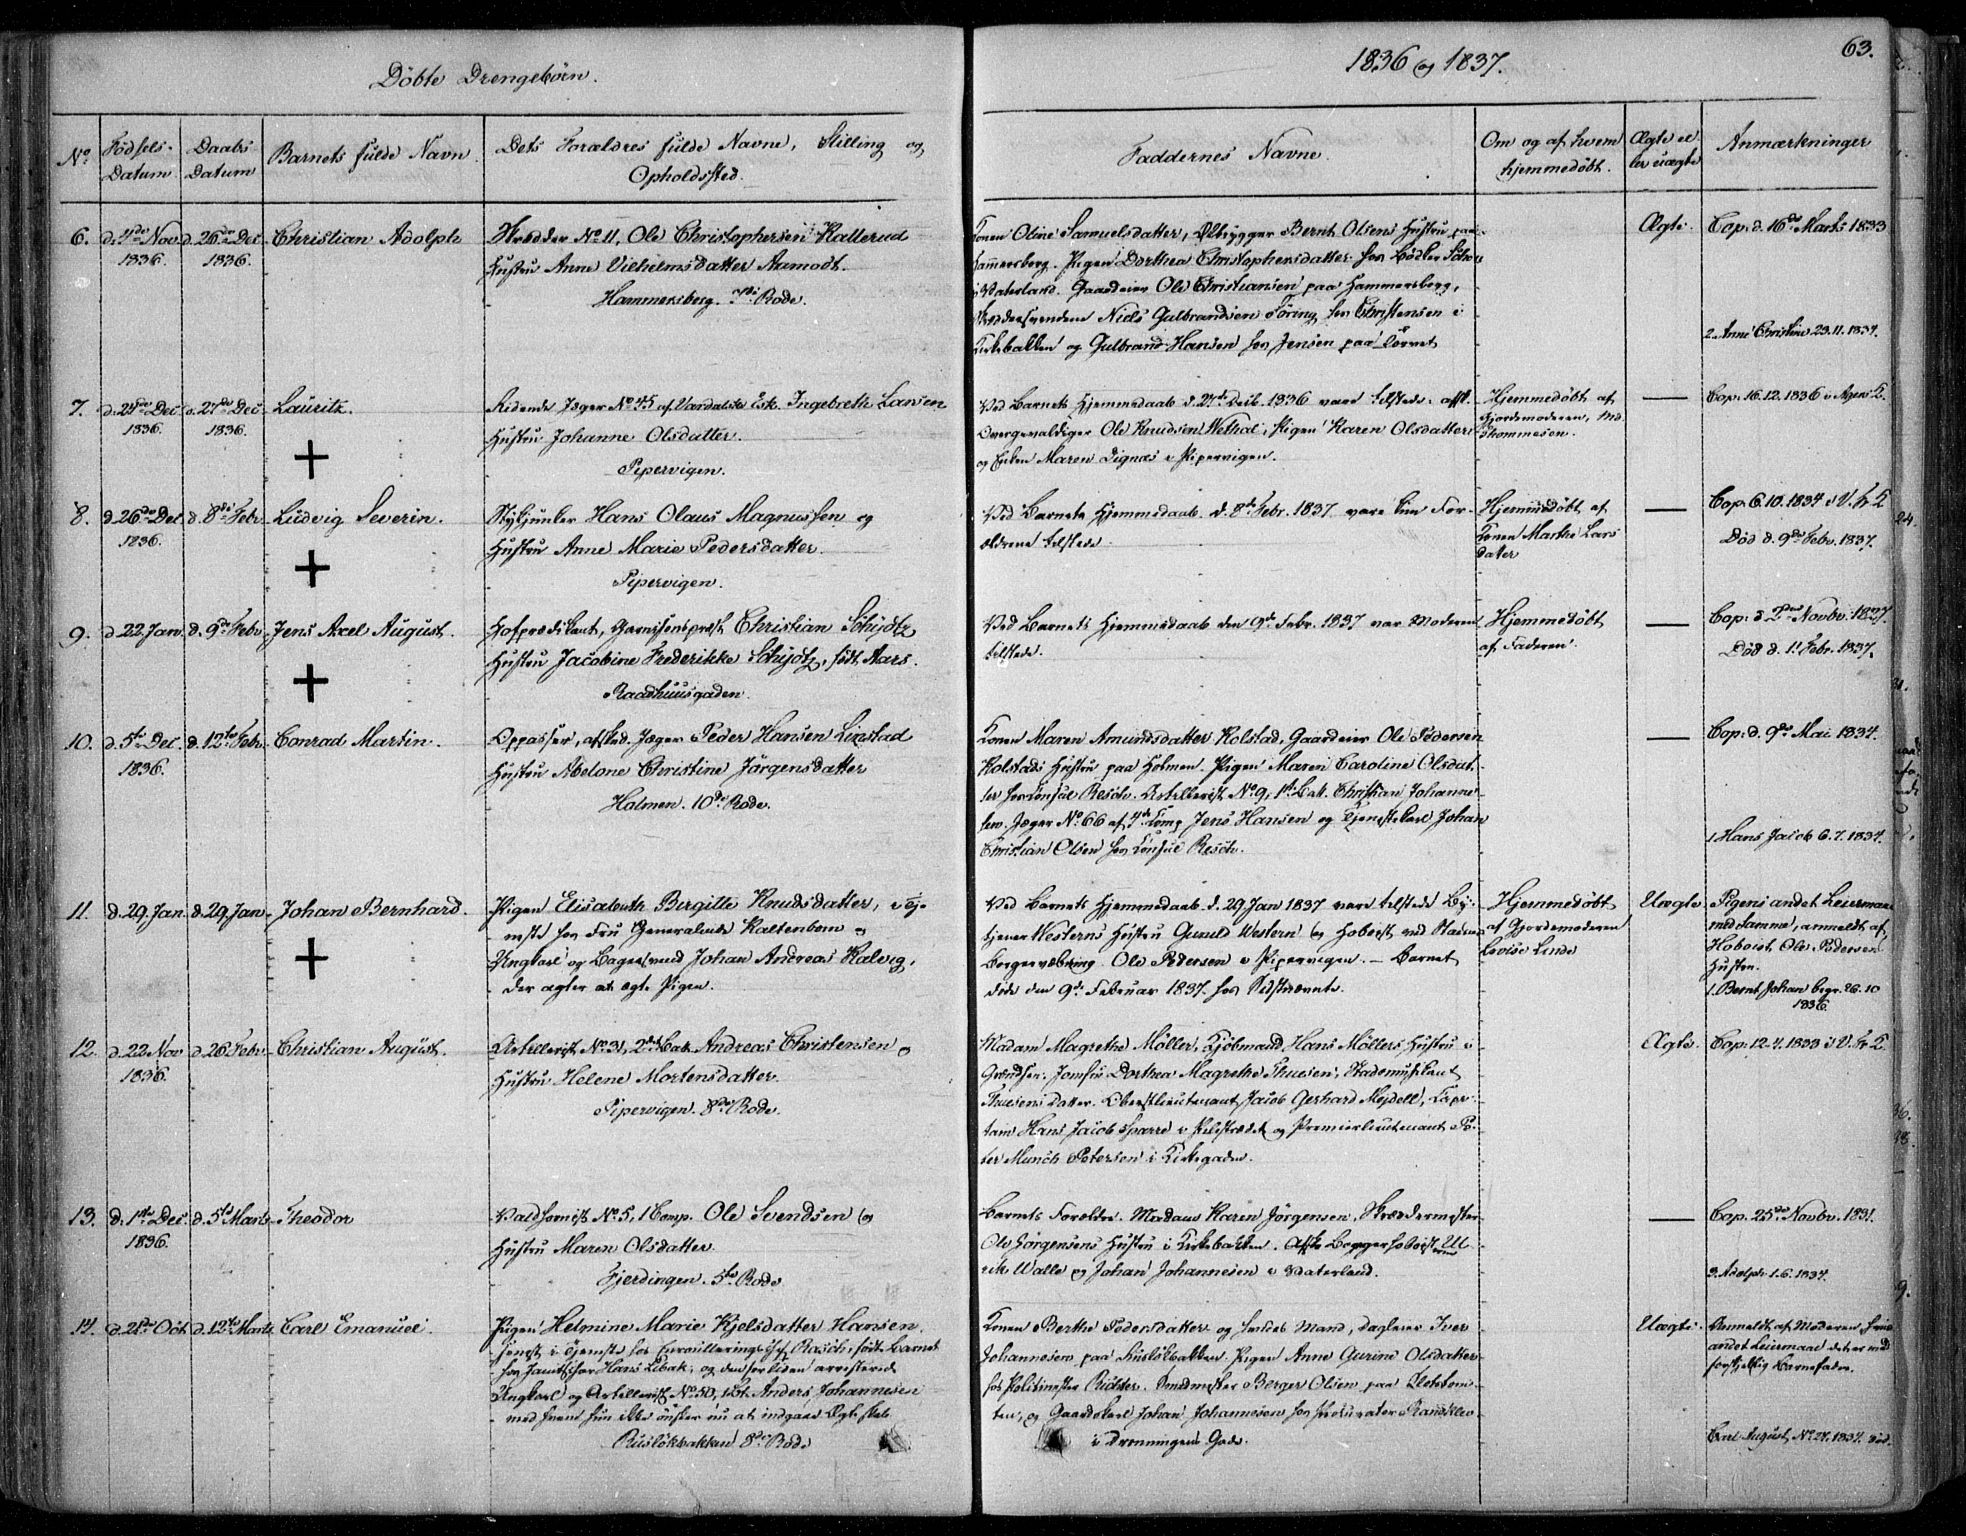 Döbte Drengebörn.
1836 og 1837.
63.
No.
Födsels-
Datum.
Daabs
Datum
Barnets fulde Navn.
Dets Forældres fulde Navne, Stilling og
Opholdssted.
Faddernes Navne.
Om og af hvem
hjemmedöbt.
Ægte el
ler uægte
Anmærkninger
6.
d. 4de Nov
1836.
d. 26de Dec
1836.
Christian Adolph
No 11, Ole Christophersen Kallerud
Hustru Anne Vilhelmsdatter Aamodt.
Hammersberg. 7de Rode.
Konen Oline Samuelsdatter, Ølbrygger Bernt Olsens Hustru paa
Hammersberg. Pigen Dorthea Christophersdatter hos Bödker
i Vaterland. Gaardeier Ole Christiansen paa Hammersberg,
Niels Gulbrandsen Föring hos Christensen i
Kirkebakken og Gulbrand Hansen hos Jensen paa Torvet
Ægte.
Cop. d. 16de Marts 1833
2. Anne Christine 23.11.1834.
7.
d. 24de Dec
1836.
d. 27de Dec.
1836.
Lauritz.
Ridende Jæger No 45 af Værdalske Esk. Ingebreth Larsen
Hustru Johanne Olsdatter.
Pipervigen.
Ved Barnets Hjemmedaab d. 27de Decb. 1836 vare tilstede: afsk.
Overgevaldiger Ole Knudsen Nethal, Pigen Karen Olsdatter
og Enken Maren Dignæs i Pipervigen.
Hjemmedöbt af
Gjordemoderen, Md.
Thommesen.
Cop. 16.12.1836 i Agers K.
8.
d. 26de Dec
1836.
d. 8de Febr.
Ludvig Severin.
Stykjunker Hans Olaus Magnussen og
Hustru Anne Marie Pedersdatter.
Pipervigen.
Ved Barnets Hjemmedaab d. 8de Febr. 1837 vare kun For-
ældrene tilstede.
Hjemmedöbt af
Konen Marthe Lars
datter
Cop. 6.10.1834 i V. Fr K
Död d. 9de Febr. 1837.
9.
d. 22 Jan.
d. 9de Febr.
Jens Axel August.
Hofprædikant, Garnisonspræst Christian Schjötz
Hustru Jacobine Frederikke Schjötz, födt Aars.
Raadhuusgaden.
Ved Barnets Hjemmedaab den 9de Febr. 1837 var Moderen
tilstede.
Hjemmedöbt
af Faderen.
Cop: d. 2den Novbr. 1827.
Död d. 11 Febr. 1837.
10.
d. 5te Dec.
1836.
d. 12te Febr.
Conrad Martin.
Oppasser, afsked. Jæger Peder Hansen Linstad
Hustru Abelone Christine Jörgensdatter
Holmen. 10de Rode.
Konen Maren Amundsdatter Kolstad, Gaardeier Ole Pedersen
Kolstads Hustru paa Holmen. Pigen Maren Caroline Olsdat-
ter hos Consul Resch. Artillerist No 9, 1st Bat. Christian Johanne-
sen. Jæger No 66 af 4de Comp Jens Hansen og Tjenestekarl Johan
Christian Olsen hos Consul Resch.
Cop: d. 9de Mai 1834.
1. Hans Jacob 6.7.1834.
11.
d. 29 Jan.
d. 29 Jan.
Johan Bernhard.
Pigen Elisabeth Birgitte Knudsdatter, i Tj-
eneste hos Fru Generalinde Kaltenborn og
Ungkarl og Bagersvend Johan Andreas Kalvig,
der agter at ægte Pigen.
Ved Barnets Hjemmedaab d. 29 Jan 1837 vare tilstede By-
tjener Westerns Hustru Gunild Western og Hoboist ved Stadens
Borgervæbning Ole Pedersen i Pipervigen. — Barnet
döde den 9de Februar 1837 hos Sidstnævnte.
Hjemmedöbt
af Gjordemoderen
Lovise Linde
Uægte
Pigens andet Leiermaal
med samme, anmeldt af
Hoboist Ole Pedersens
Hustru.
1. Bernt Johan begr. 26.10
1836.
12.
d. 22 Nov
1836.
d. 26 Febr.
Christian August.
Artillerist No 31, 2det Bat. Andreas Christensen og
Hustru Helene Mortensdatter.
Pipervigen. 8de Rode.
Madam Magrethe Möller, Kjöbmand Hans Möllers Hustru i
Grændsen. Jomfru Dorthea Magrethe Thuesen, Stadsmusikant
Thuesens Datter. Oberstlieutenant Jacob Gerhard Mejdell, Cap-
tain Hans Jacob Sparre i Pilestrædet og Premierlieutenant Pe-
ter Munch Petersen i Kirkegaden.
Ægte.
Cop. 12.7.1833 i V. Fr K.
13.
d. 1ste Dec.
1836.
d. 5te Marts
Theodor
Valdhornist No. 5, 1 Comp. Ole Svendsen og
Hustru Maren Olsdatter.
Fjerdingen. 5te Rode
Barnets Forældre. Madam Karen Jörgensen, Skræddermester
Ole Jörgensens Hustru i Kirkebakken. Afsk. Hoboist Ul-
rik Walle og Johan Johannesen i Vaterland.
Cop. 25de Novbr. 1831.
3. Adolph 1.6.1834.
14.
d. 21de Oct.
d. 12te Marts
Carl Emanuel.
Pigen Helmine Marie Kjelsdatter Hansen.
senest i Tjeneste hos Rasch, födte Barnet
hos Hans Libak, og den for tiden arresterede
Ungkarl og Artillerist No. 50, Anders Johannesen
med hvem hun ikke önsker nu at indgaae Ægteskab
Ruslökbakken 8de Rode
Konen Berthe Pedersdatter og hendes Mand, Dagleier Iver
Johannesen paa Ruslökbakken. Pigen Anne Gurine Olsdatter
hos Politimester Richter. Smedmester Berger Olsen paa Slotstom-
ten, og Gaardskarl Johan Johannesen hos Procurator Ransklev
i Dronningens Gade.
Uægte.
Anmeldt af Moderen hvis
andet Leiermaal det er med
forskjellig Barnefader.
Carl August, No. 27. 1834. död.